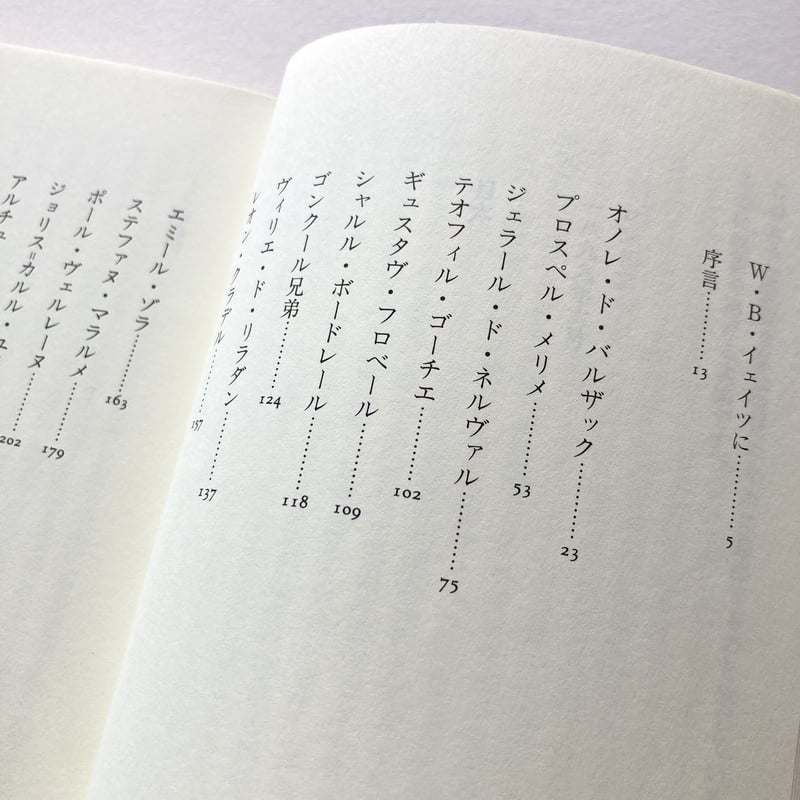 W・B・イェイツに…………5
序言…………13
オノレ・ド・バルザック…………23
プロスペル・メリメ…………53
ジェラール・ド・ネルヴァル…………75
テオフィル・ゴーチエ…………102
ギュスタヴ・フロベール…………109
シャルル・ボードレール…………118
ゴンクール兄弟…………124
ヴィリエ・ド・リラダン…………137
レオン・クラデル…………157
エミール・ゾラ…………163
ステファヌ・マラルメ…………179
ポール・ヴェルレーヌ…………202
ジョリス=カルル・ユ
アルチュ